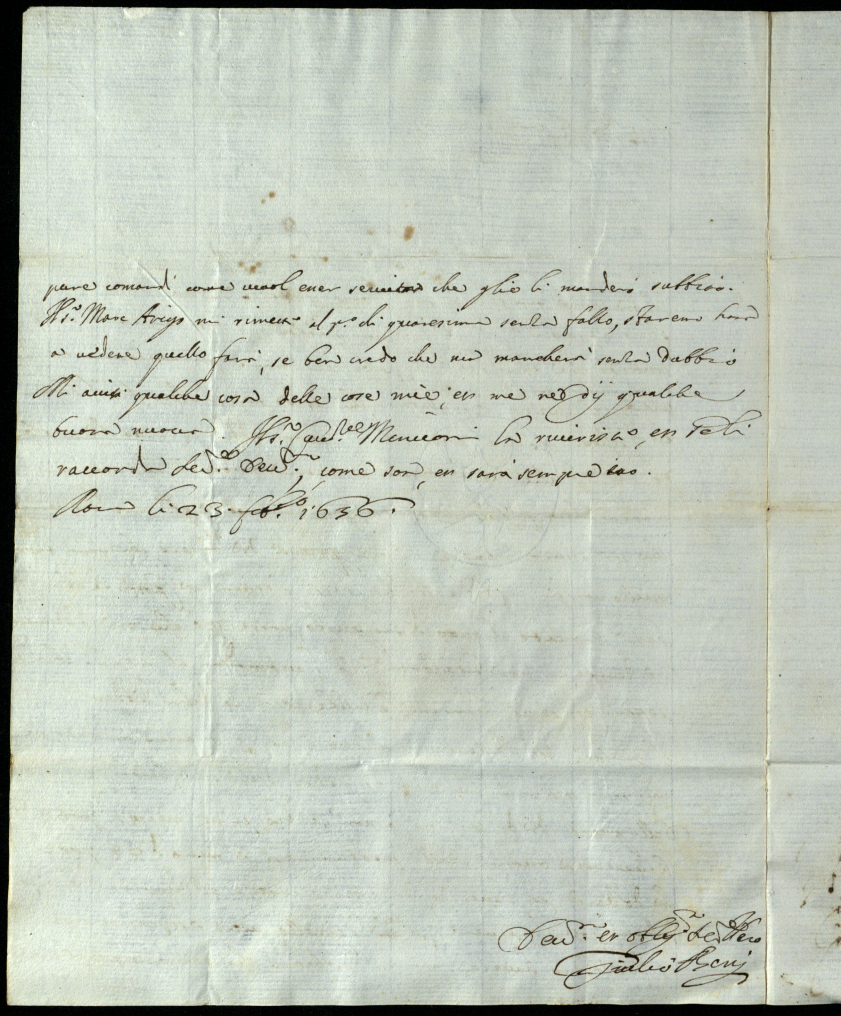 pure comandi come vuol esser servito che glie li manderò subbito.
Il S.r Marc Arigo mi rimette al p.o di quaresima senza fallo, staremo hora
a vedere quello farà, se ben credo che non mancherà senza dubbio
Mi avisi qualche cosa delle cose mie, et me ne dij qualche
buona nuova. Il S.r Cav.re la riverisco, et se li
raccorda Ser.re Dev.mo, come son, et sarà sempre
Roma li 23 feb.ro 1636.
Dev.mo et oblig.mo Ser.re Vero
Giulio